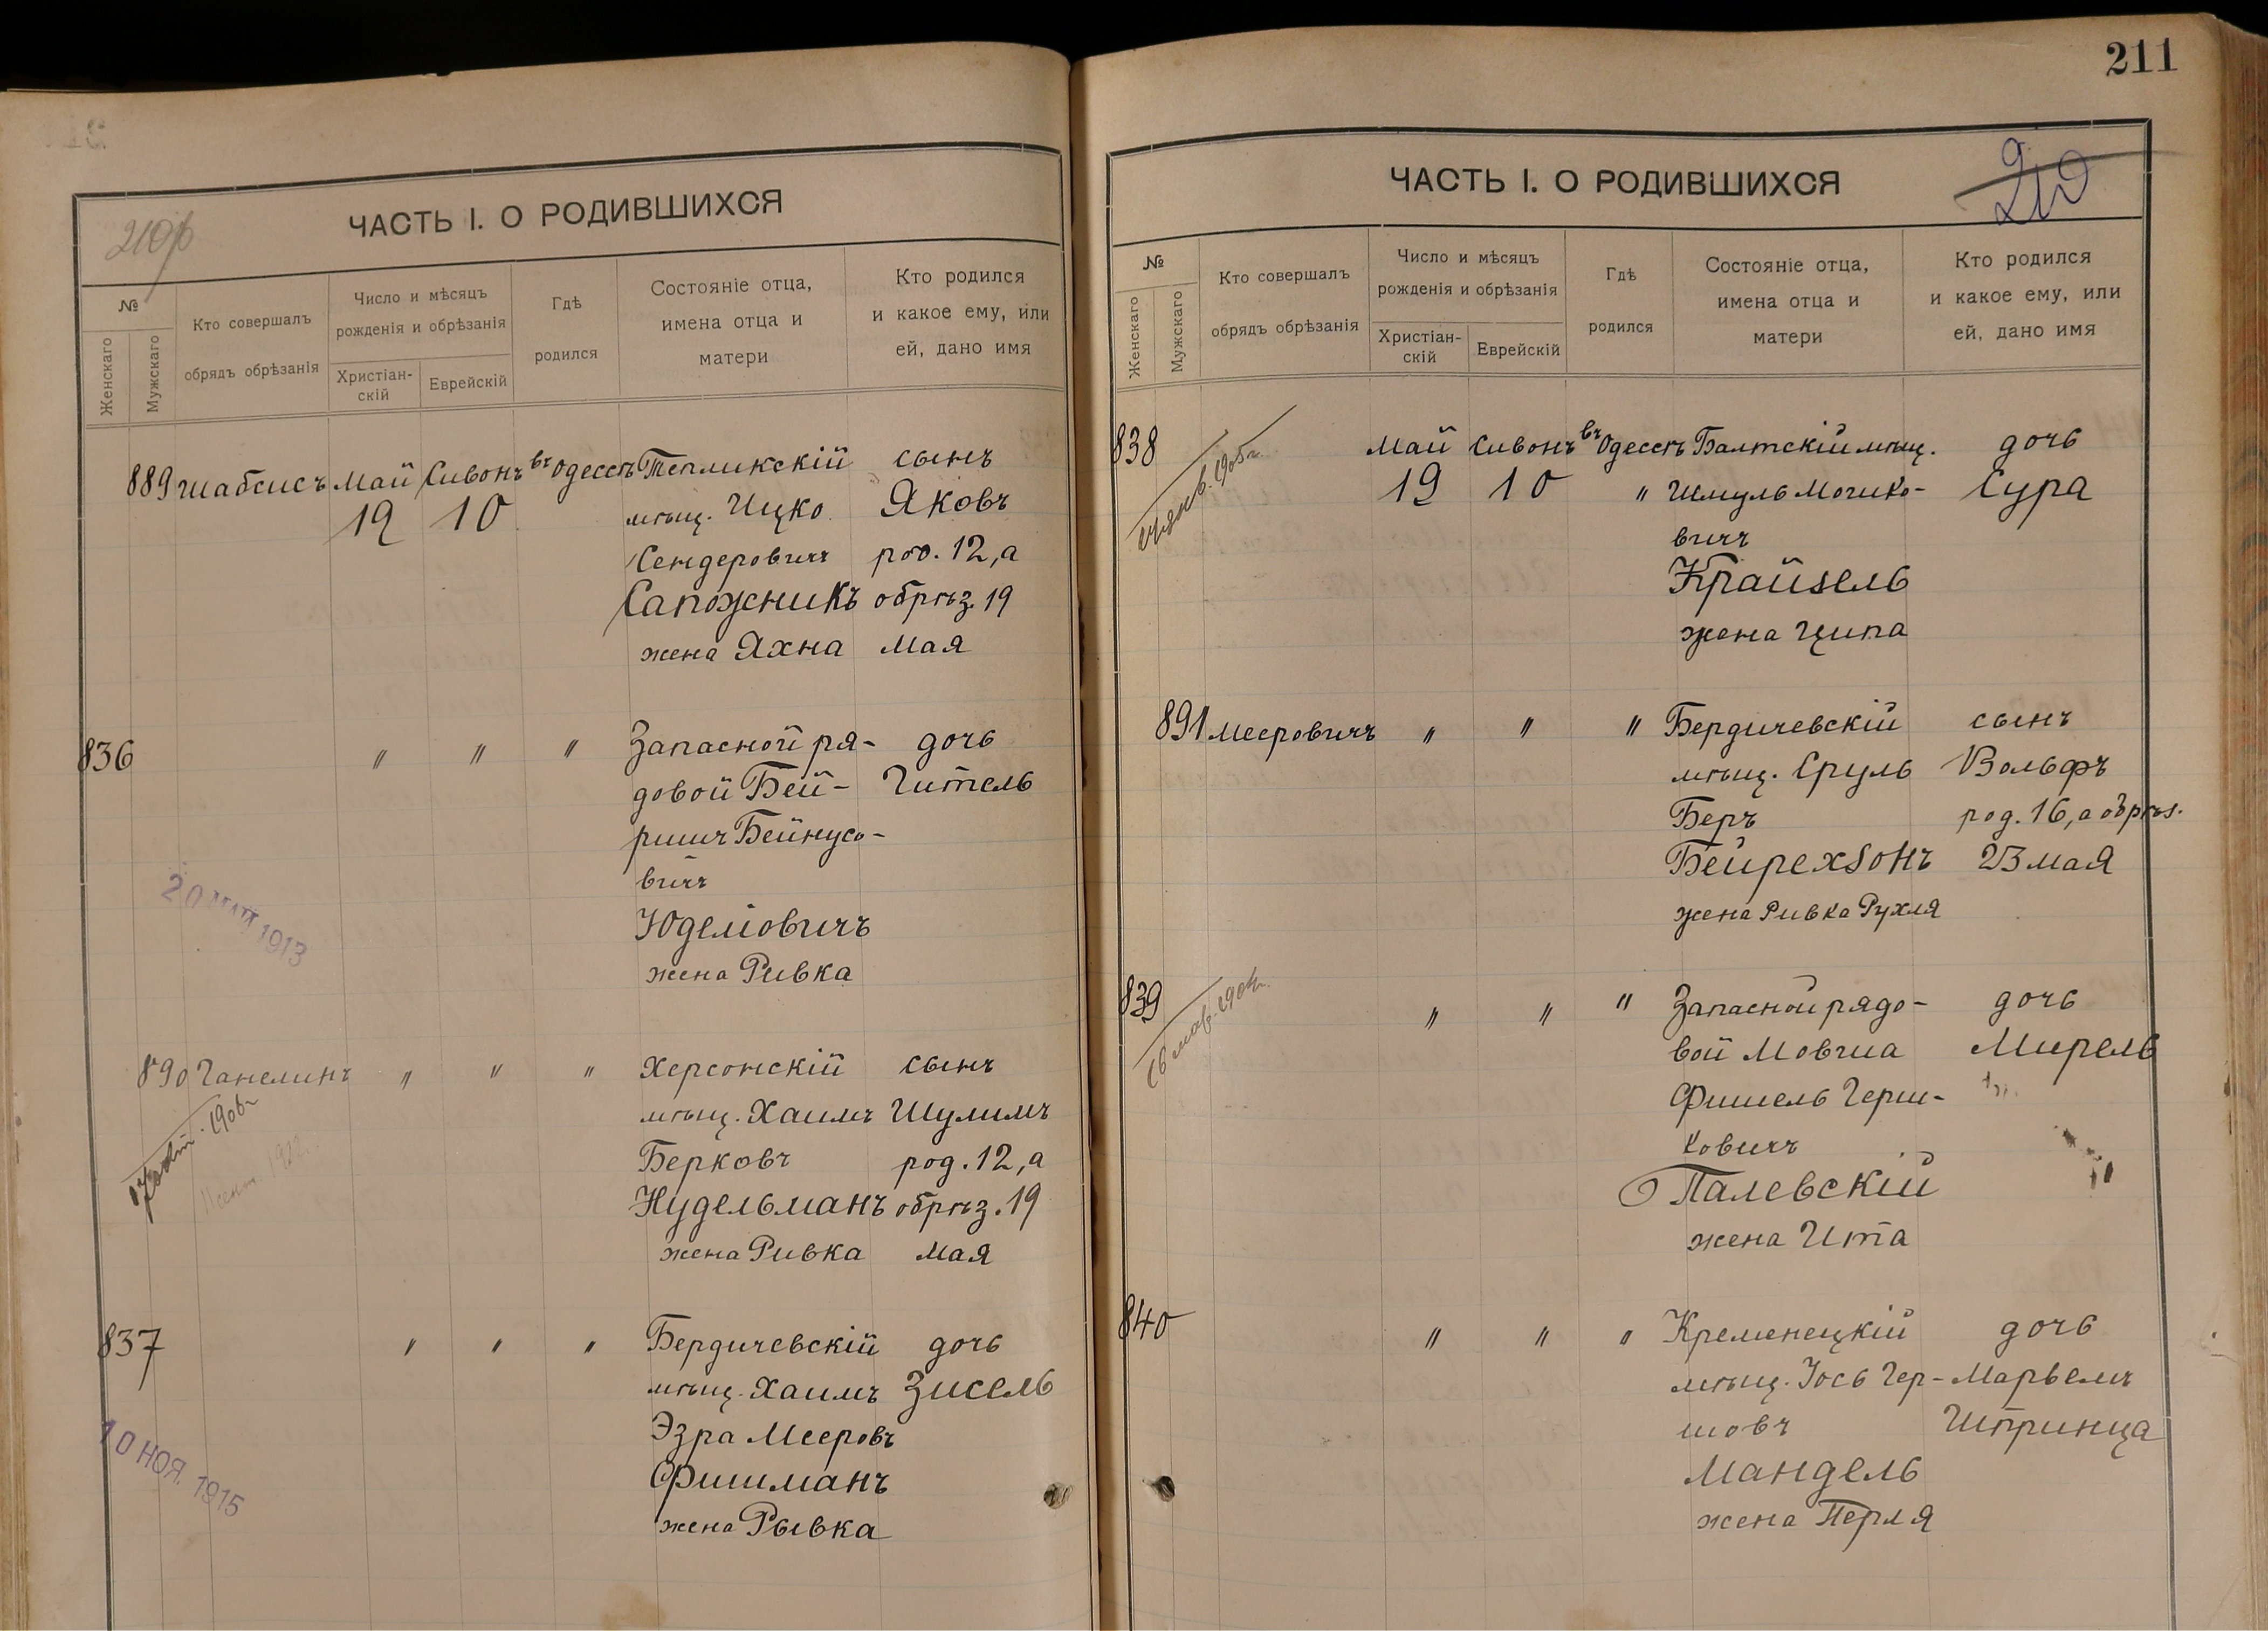 211
ЧАСТЬ I. О РОДИВШИХСЯ
№
Женскаго
Мужскаго
Кто совершалъ
обрядъ обрѣзанія
Число и мѣсяцъ
рожденія и обрѣзанія
Христіан-
скій
Еврейскій
Гдѣ
родился
Состояніе отца,
имена отца и
матери
Кто родился
и какое ему, или
ей, дано имя
889 Шабсисъ Май Сивонъ въ Одессѣ Тепликскій сынъ
19 10 мѣщ. Ицко Яковъ
Сендеровичъ род. 12, а
Сапожникъ обрѣз. 19
жена Яхна мая
836 " " " Запасной ря- дочь
довой Бей- Гитель
ришъ Бейнусо-
вичъ
Юделіовичъ
жена Ривка
20 МАЙ 1913
890 Ганелинъ " " " Херсонскій сынъ
мѣщ. Хаимъ Шулимъ
Берковъ род. 12, а
Нудельманъ обрѣз. 19
жена Ривка мая
837 " " " Бердичевскій дочь
мѣщ. Хаимъ Зисель
Эзра Мееровъ
Фишманъ
жена Рывка
10 НОЯ. 1915
ЧАСТЬ I. О РОДИВШИХСЯ
210
№
Женскаго
Мужскаго
Кто совершалъ
обрядъ обрѣзанія
Число и мѣсяцъ
рожденія и обрѣзанія
Христіан-
скій
Еврейскій
Гдѣ
родился
Состояніе отца,
имена отца и
матери
Кто родился
и какое ему, или
ей, дано имя
838 Май Сивонъ въ Одессѣ Балтскій мѣщ. дочь
19 10 " Шмуль Мошко- Сура
вичъ
Крайзель
жена Ципа
891 Мееровичъ " " " Бердичевскій сынъ
мѣщ. Сруль Вольфъ
Беръ род. 16, а обрѣз.
Бейрехзонъ 23 мая
жена Ривка Рухля
839 " " " Запасной рядо- дочь
вой Мовша Мирель
Фишель Герш-
ковичъ
Палевскій
жена Ита
840 " " " Кременецкій дочь
мѣщ. Іось Гер- Марьемъ
шовъ Шпринца
Мандель
жена Перля